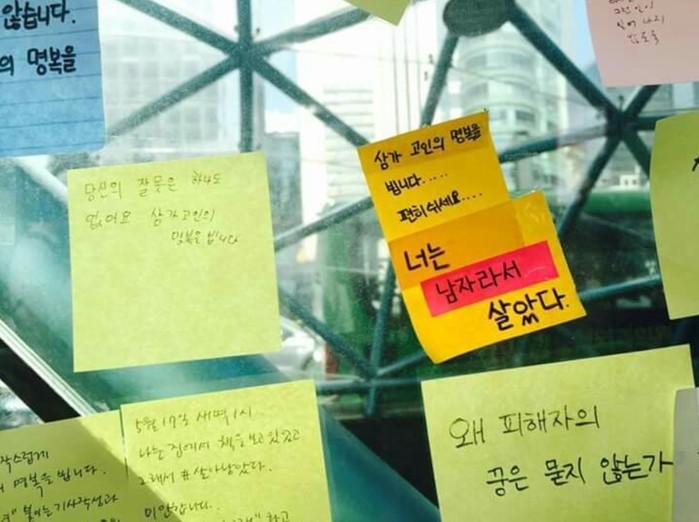 않습니다.
의 명복을
당신의 잘못은 하나도
없어요 삼가 고인의
명복을 빕니다
삼가 고인의 명복을
빕니다.....
편히쉬세요....
너는
남자라서
살았다.
명복을 빕니다.
5월 17일 새벽 1시.
나는 집에서 책을 보고 있었고
그래서 #살아남았다.
미안합니다.
왜 피해자의
꿈은 묻지 않는가